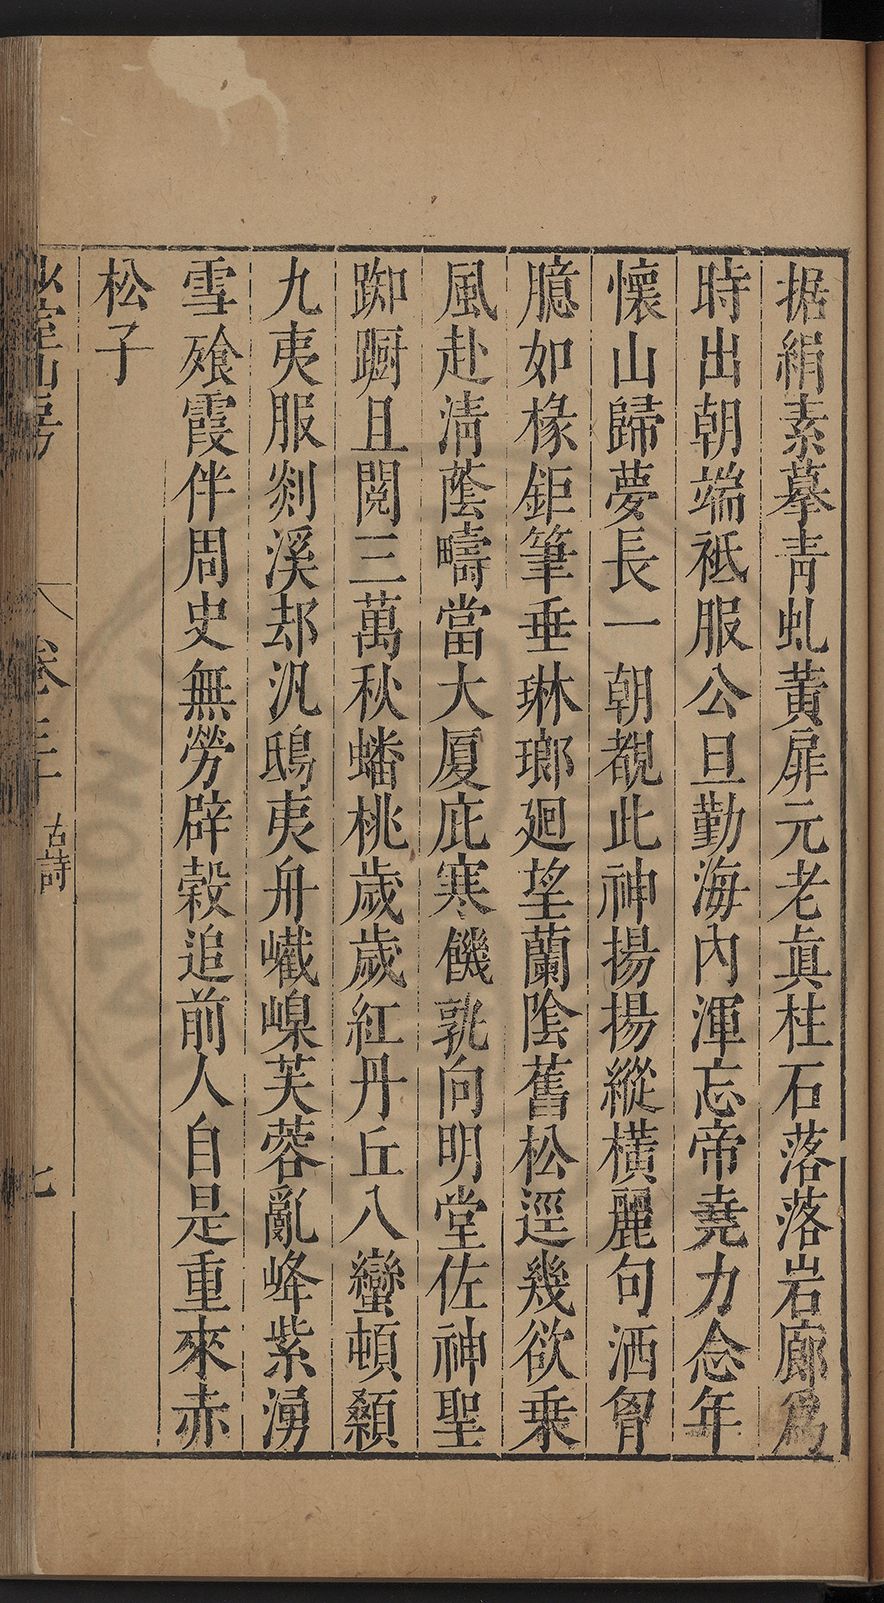 据絹素摹青虬黃扉元老眞柱石落落岩廊爲
時出朝端祗服公旦勤海內渾忘帝堯力念年
懷山歸夢長一朝覩此神揚揚縱橫麗句洒胷
臆如椽鉅筆垂琳瑯廻望蘭陰舊松逕幾欲乗
風赴淸蔭疇當大厦庇寒饑孰向明堂佐神聖
踟蹰且閱三萬秋蟠桃歲歲紅丹丘八蠻頓顙
九夷服剡溪却汎鴟夷舟巀嵲芙蓉亂峰紫湧
雪飧霞伴周史無勞辟穀追前人自是重來赤
松子
少室山房
卷二十
古詩
七